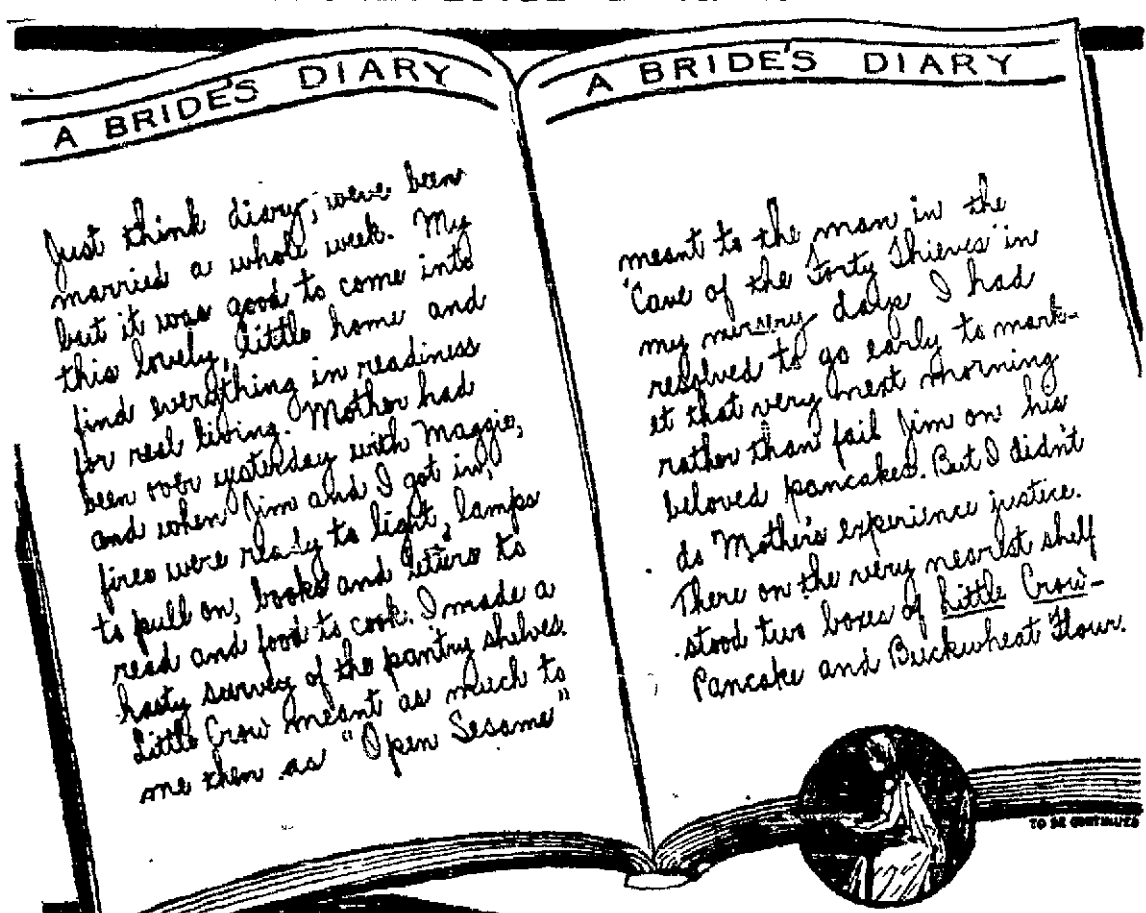 A BRIDE'S DIARY
Just think diary, we've been
married a whole week. My
but it was good to come into
this lovely, little home and
find everything in readiness
for real living. Mother had
been over yesterday with Maggie,
and when Jim and I got in,
fires were ready to light, lamps
to pull on, books and letters to
read and food to cook. I made a
hasty survey of the pantry shelves.
Little Crow meant as much to
me then as "Open Sesame"
A BRIDE'S DIARY
meant to the man in the
"Cave of the Forty Thieves" in
my nursery days I had
resolved to go early to mark-
et that very next morning
rather than fail Jim on his
beloved pancakes. But I didn't
do Mother's experience justice.
There on the very nearest shelf
stood two boxes of Little Crow-
Pancake and Buckwheat Flour.
TO BE CONTINUED